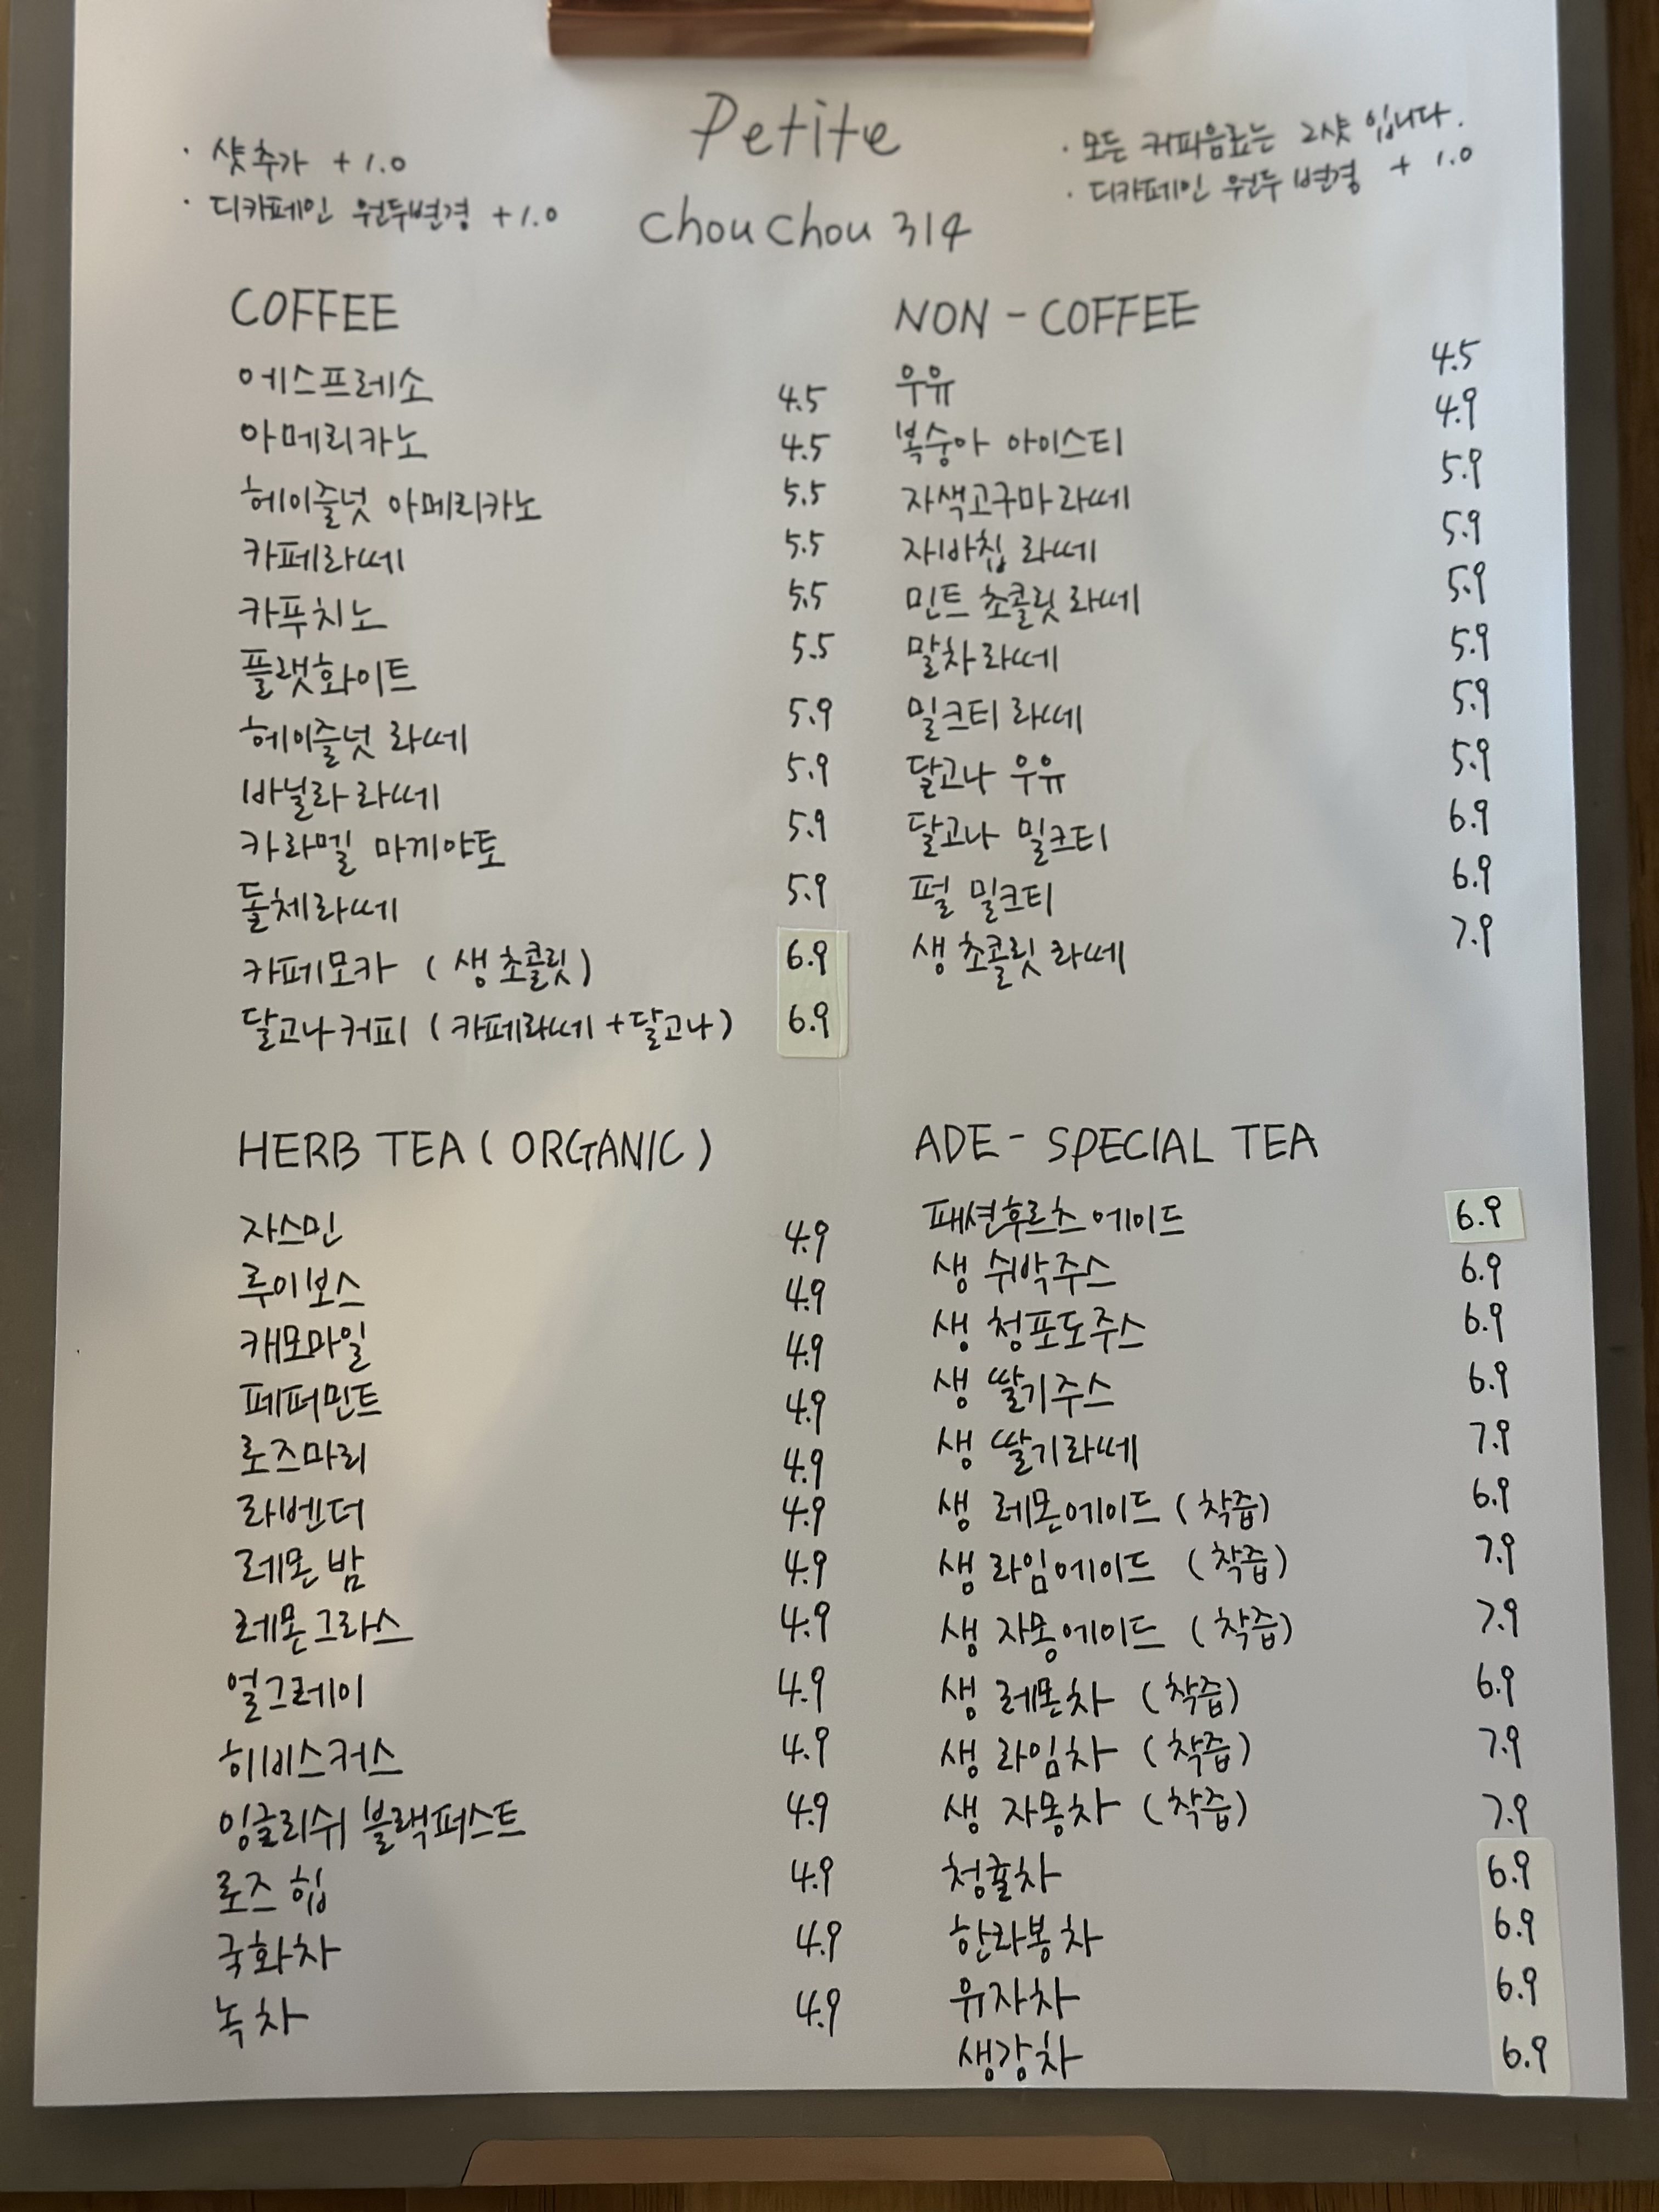 Petite
ChouChou 314
· 샷추가 +1.0
· 디카페인 원두변경 +1.0
· 모든 커피음료는 2샷 입니다.
· 디카페인 원두 변경 + 1.0
COFFEE
에스프레소 4.5
아메리카노 4.5
헤이즐넛 아메리카노 5.5
카페라떼 5.5
카푸치노 5.5
플랫화이트 5.5
헤이즐넛 라떼 5.9
바닐라 라떼 5.9
카라멜 마끼야토 5.9
돌체라떼 5.9
카페모카 (생초콜릿) 6.9
달고나커피 (카페라떼+달고나) 6.9
NON - COFFEE
우유 4.5
복숭아 아이스티 4.9
자색고구마라떼 5.9
자바칩 라떼 5.9
민트 초콜릿 라떼 5.9
말차라떼 5.9
밀크티 라떼 5.9
달고나 우유 5.9
달고나 밀크티 6.9
펄 밀크티 6.9
생 초콜릿 라떼 7.9
HERB TEA (ORGANIC)
자스민 4.9
루이보스 4.9
캐모마일 4.9
페퍼민트 4.9
로즈마리 4.9
라벤더 4.9
레몬밤 4.9
레몬그라스 4.9
얼그레이 4.9
히비스커스 4.9
잉글리쉬 블랙퍼스트 4.9
로즈 힙 4.9
국화차 4.9
녹차 4.9
ADE - SPECIAL TEA
패션후르츠에이드 6.9
생 수박주스 6.9
생 청포도주스 6.9
생 딸기주스 6.9
생 딸기라떼 7.9
생 레몬에이드 (착즙) 6.9
생 라임에이드 (착즙) 7.9
생 자몽에이드 (착즙) 7.9
생 레몬차 (착즙) 6.9
생 라임차 (착즙) 7.9
생 자몽차 (착즙) 7.9
청귤차 6.9
한라봉차 6.9
유자차 6.9
생강차 6.9